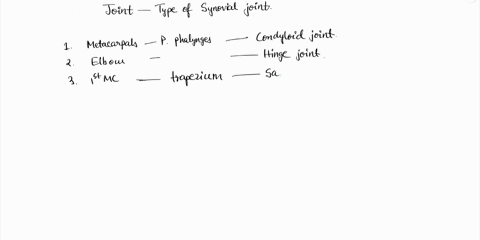 Joint — Type of Synovial joint.
1. Metacarpals — P. phalynges — Condyloid joint.
2. Elbow — — Hinge joint.
3. 1st MC — trapezium — Sa